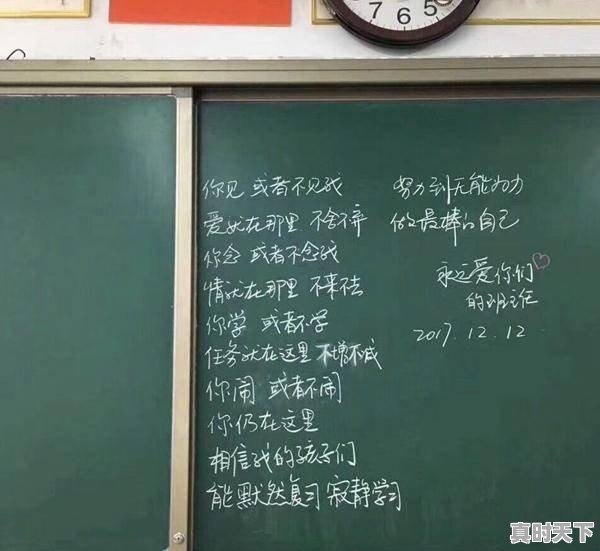 7 6 5
你见 或者不见我
爱就在那里 不舍不弃
你念 或者不念我
情就在那里 不来不去
你学 或者不学
任务就在这里 不增不减
你闹 或者不闹
你仍在这里
相信我的孩子们
能默然复习 寂静学习
努力到无能为力
做最棒的自己
永远爱你们
的班主任
2017.12.12.
真时天下